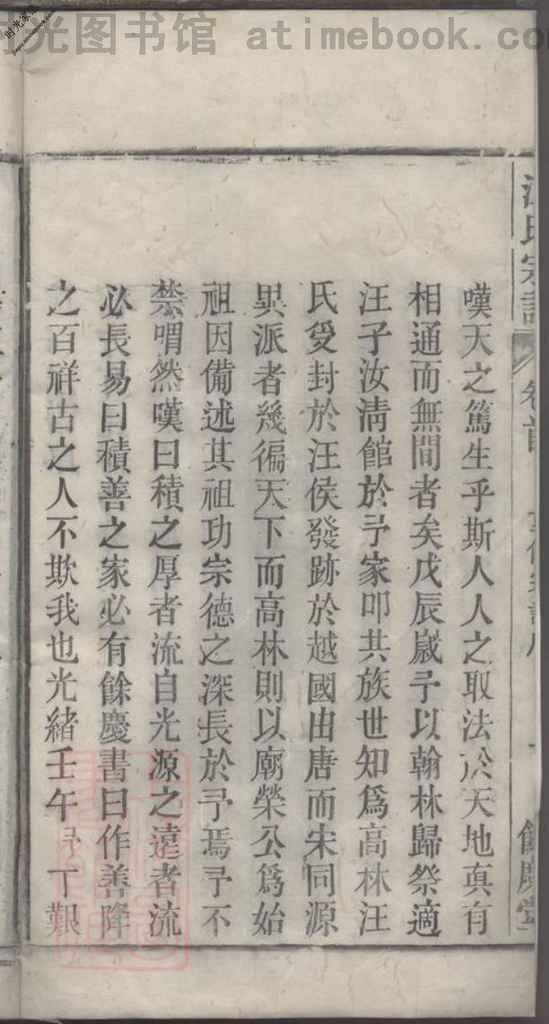 时光图书馆 atimebook.co
汪氏宗譜 卷首
餘慶堂
嘆天之篤生乎斯人人之取法於天地真有
相通而無間者矣戊辰歲予以翰林歸祭適
汪子汝淸館於予家叩其族世知爲高林汪
氏受封於汪侯發跡於越國由唐而宋同源
異派者幾徧天下而高林則以廟榮公爲始
祖因備述其祖功宗德之深長於予焉予不
禁喟然嘆曰積之厚者流自光源之遠者流
必長易曰積善之家必有餘慶書曰作善降
之百祥古之人不欺我也光緒壬午予丁艱